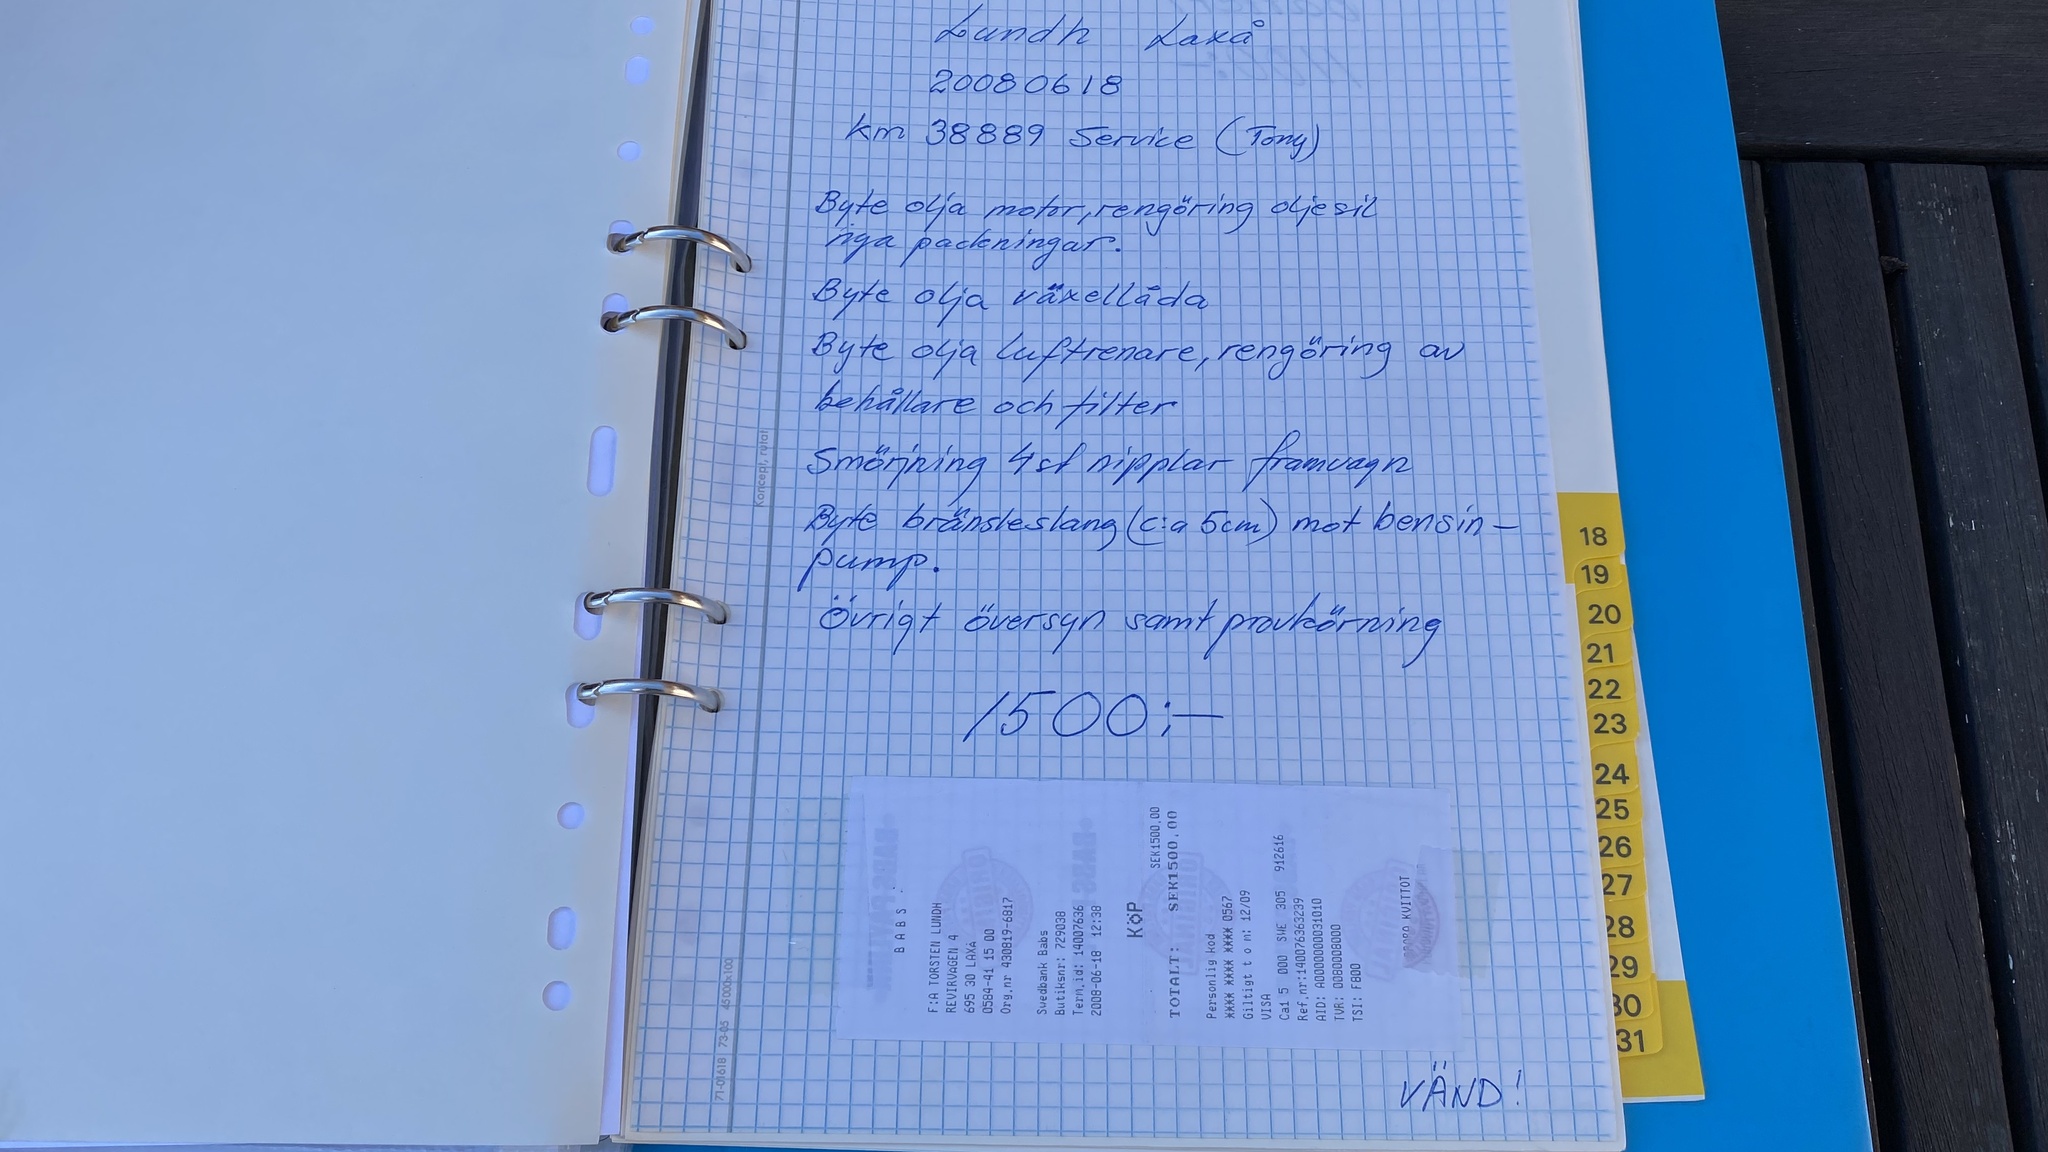 Lundh Laxå
20080618
km 38889 Service (Tony)
Byte olja motor, rengöring oljesil
nya packningar.
Byte olja växellåda
Byte olja luftrenare, rengöring av
behållare och filter
Smörjning 4 st nipplar framvagn
Byte bränsleslang (c:a 5cm) mot bensin-
pump.
Övrigt översyn samt provkörning
1500:-
BABS
F:A TORSTEN LUNDH
REVIRVÄGEN 4
695 30 LAXÅ
0584-41 15 00
Org.nr 430819-6817
Swedbank Babs
Butiksnr: 729038
Term.id: 14007636
2008-06-18 12:38
KÖP
SEK1500.00
TOTALT: SEK1500.00
Personlig kod
**** **** **** 0567
Giltigt t o m: 12/09
VISA
Ca1 5 000 SWE 305 912616
Ref.nr:140076363239
AID: A0000000031010
TVR: 0080008000
TSI: F800
KVITTOT
VÄND!
Koncept, rutat
71-01618 73-05 45000x100
18
19
20
21
22
23
24
25
26
27
28
29
30
31